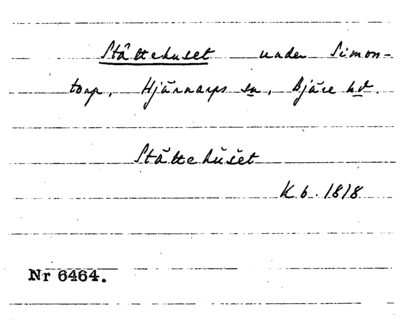 Stättehuset under Simon-
torp, Hjärnarps sn, Bjäre hd.
Stättehuset
Kb. 1818
Nr 6464.